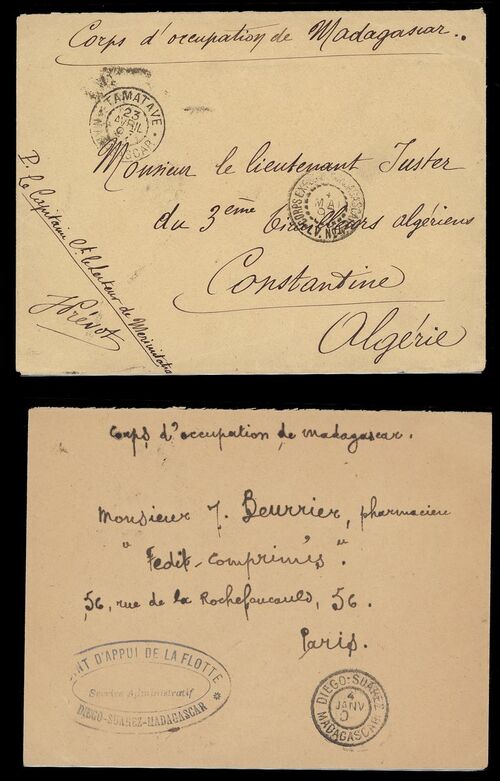 Corps d'occupation de Madagascar..
TAMATAVE
23
AVRIL
Monsieur le lieutenant Juster
CORPS EX
MAI
du 3ème Tirailleurs algériens
Constantine
Algérie
P. Le Capitaine Ct le Secteur de
Prévot
Corps d'occupation de Madagascar.
Monsieur J. Beurrier, pharmacien
"Fedit-Comprimés."
56, rue de la Rochefoucauld, 56.
Paris.
NT D'APPUI DE LA FLOTTE
Service Administratif
DIEGO-SUAREZ-MADAGASCAR
DIEGO-SUAREZ
4
JANV
MADAGASCAR